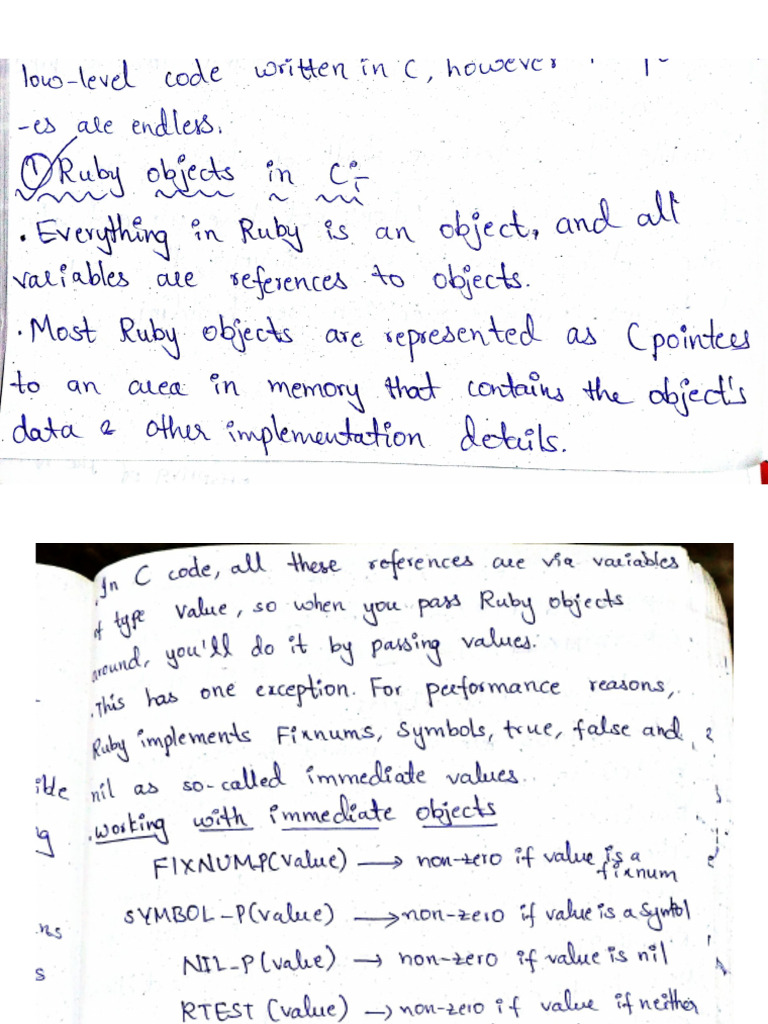 low-level code written in C, however
-es are endless.
① Ruby objects in C:-
• Everything in Ruby is an object, and all
variables are references to objects.
• Most Ruby objects are represented as C pointers
to an area in memory that contains the object's
data & other implementation details.
• In C code, all these references are via variables
of type value, so when you pass Ruby objects
around, you'll do it by passing values.
• This has one exception. For performance reasons,
Ruby implements Fixnums, Symbols, true, false and
nil as so-called immediate values.
• working with immediate objects
FIXNUM_P(value) → non-zero if value is a
fixnum
SYMBOL_P(value) → non-zero if value is a Symbol
NIL_P(value) → non-zero if value is nil
RTEST (value) → non-zero if value if neither